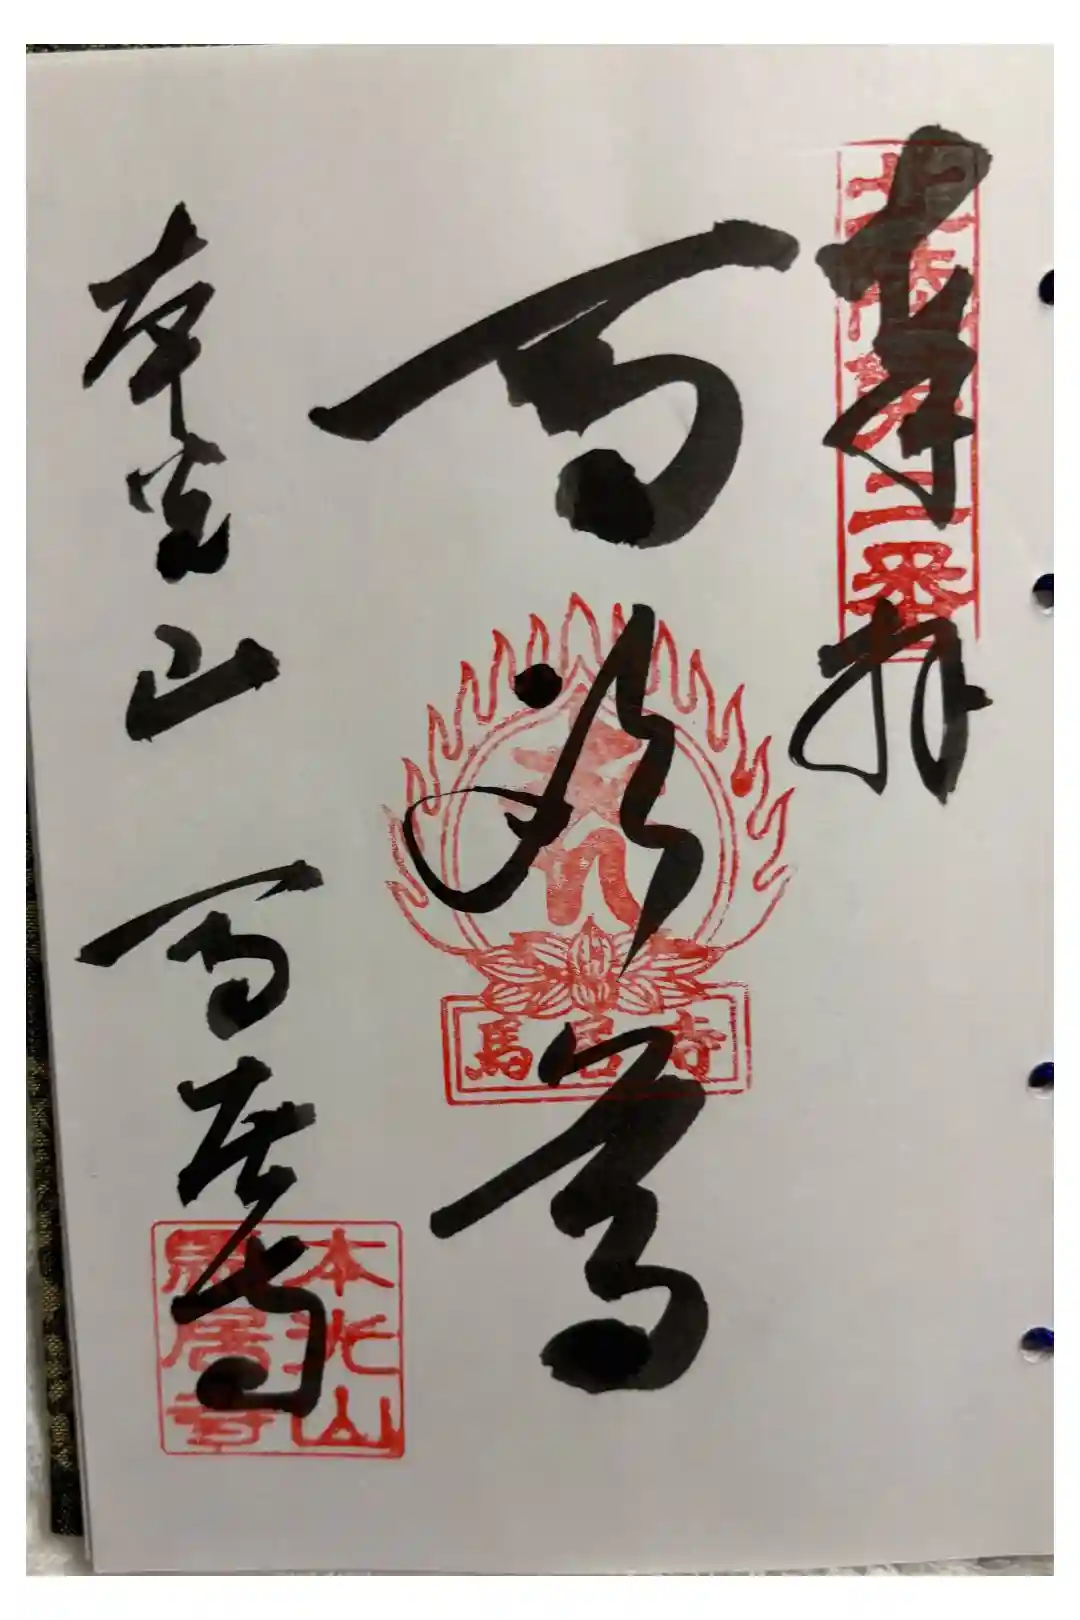 奉拝
北陸第二番
馬頭尊
馬居寺
本光山 馬居寺
本光山
馬居寺